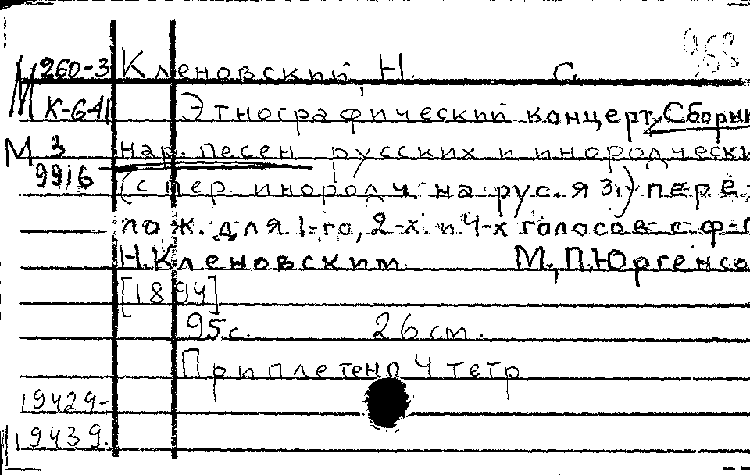 968
М 260-3 Кленовский, Н. С.
К-641 Этнографический концерт. Сборник
М 3 нар. песен русских и инородчески
9916 (с пер. инородч. на рус. яз.) пере-
лож. для 1-го, 2-х и 4-х голосов с ф-п
Н. Кленовским. М., П. Юргенсо
[1894]
95 с. 26 см.
Приплетено 4 тетр
19429-
19439.